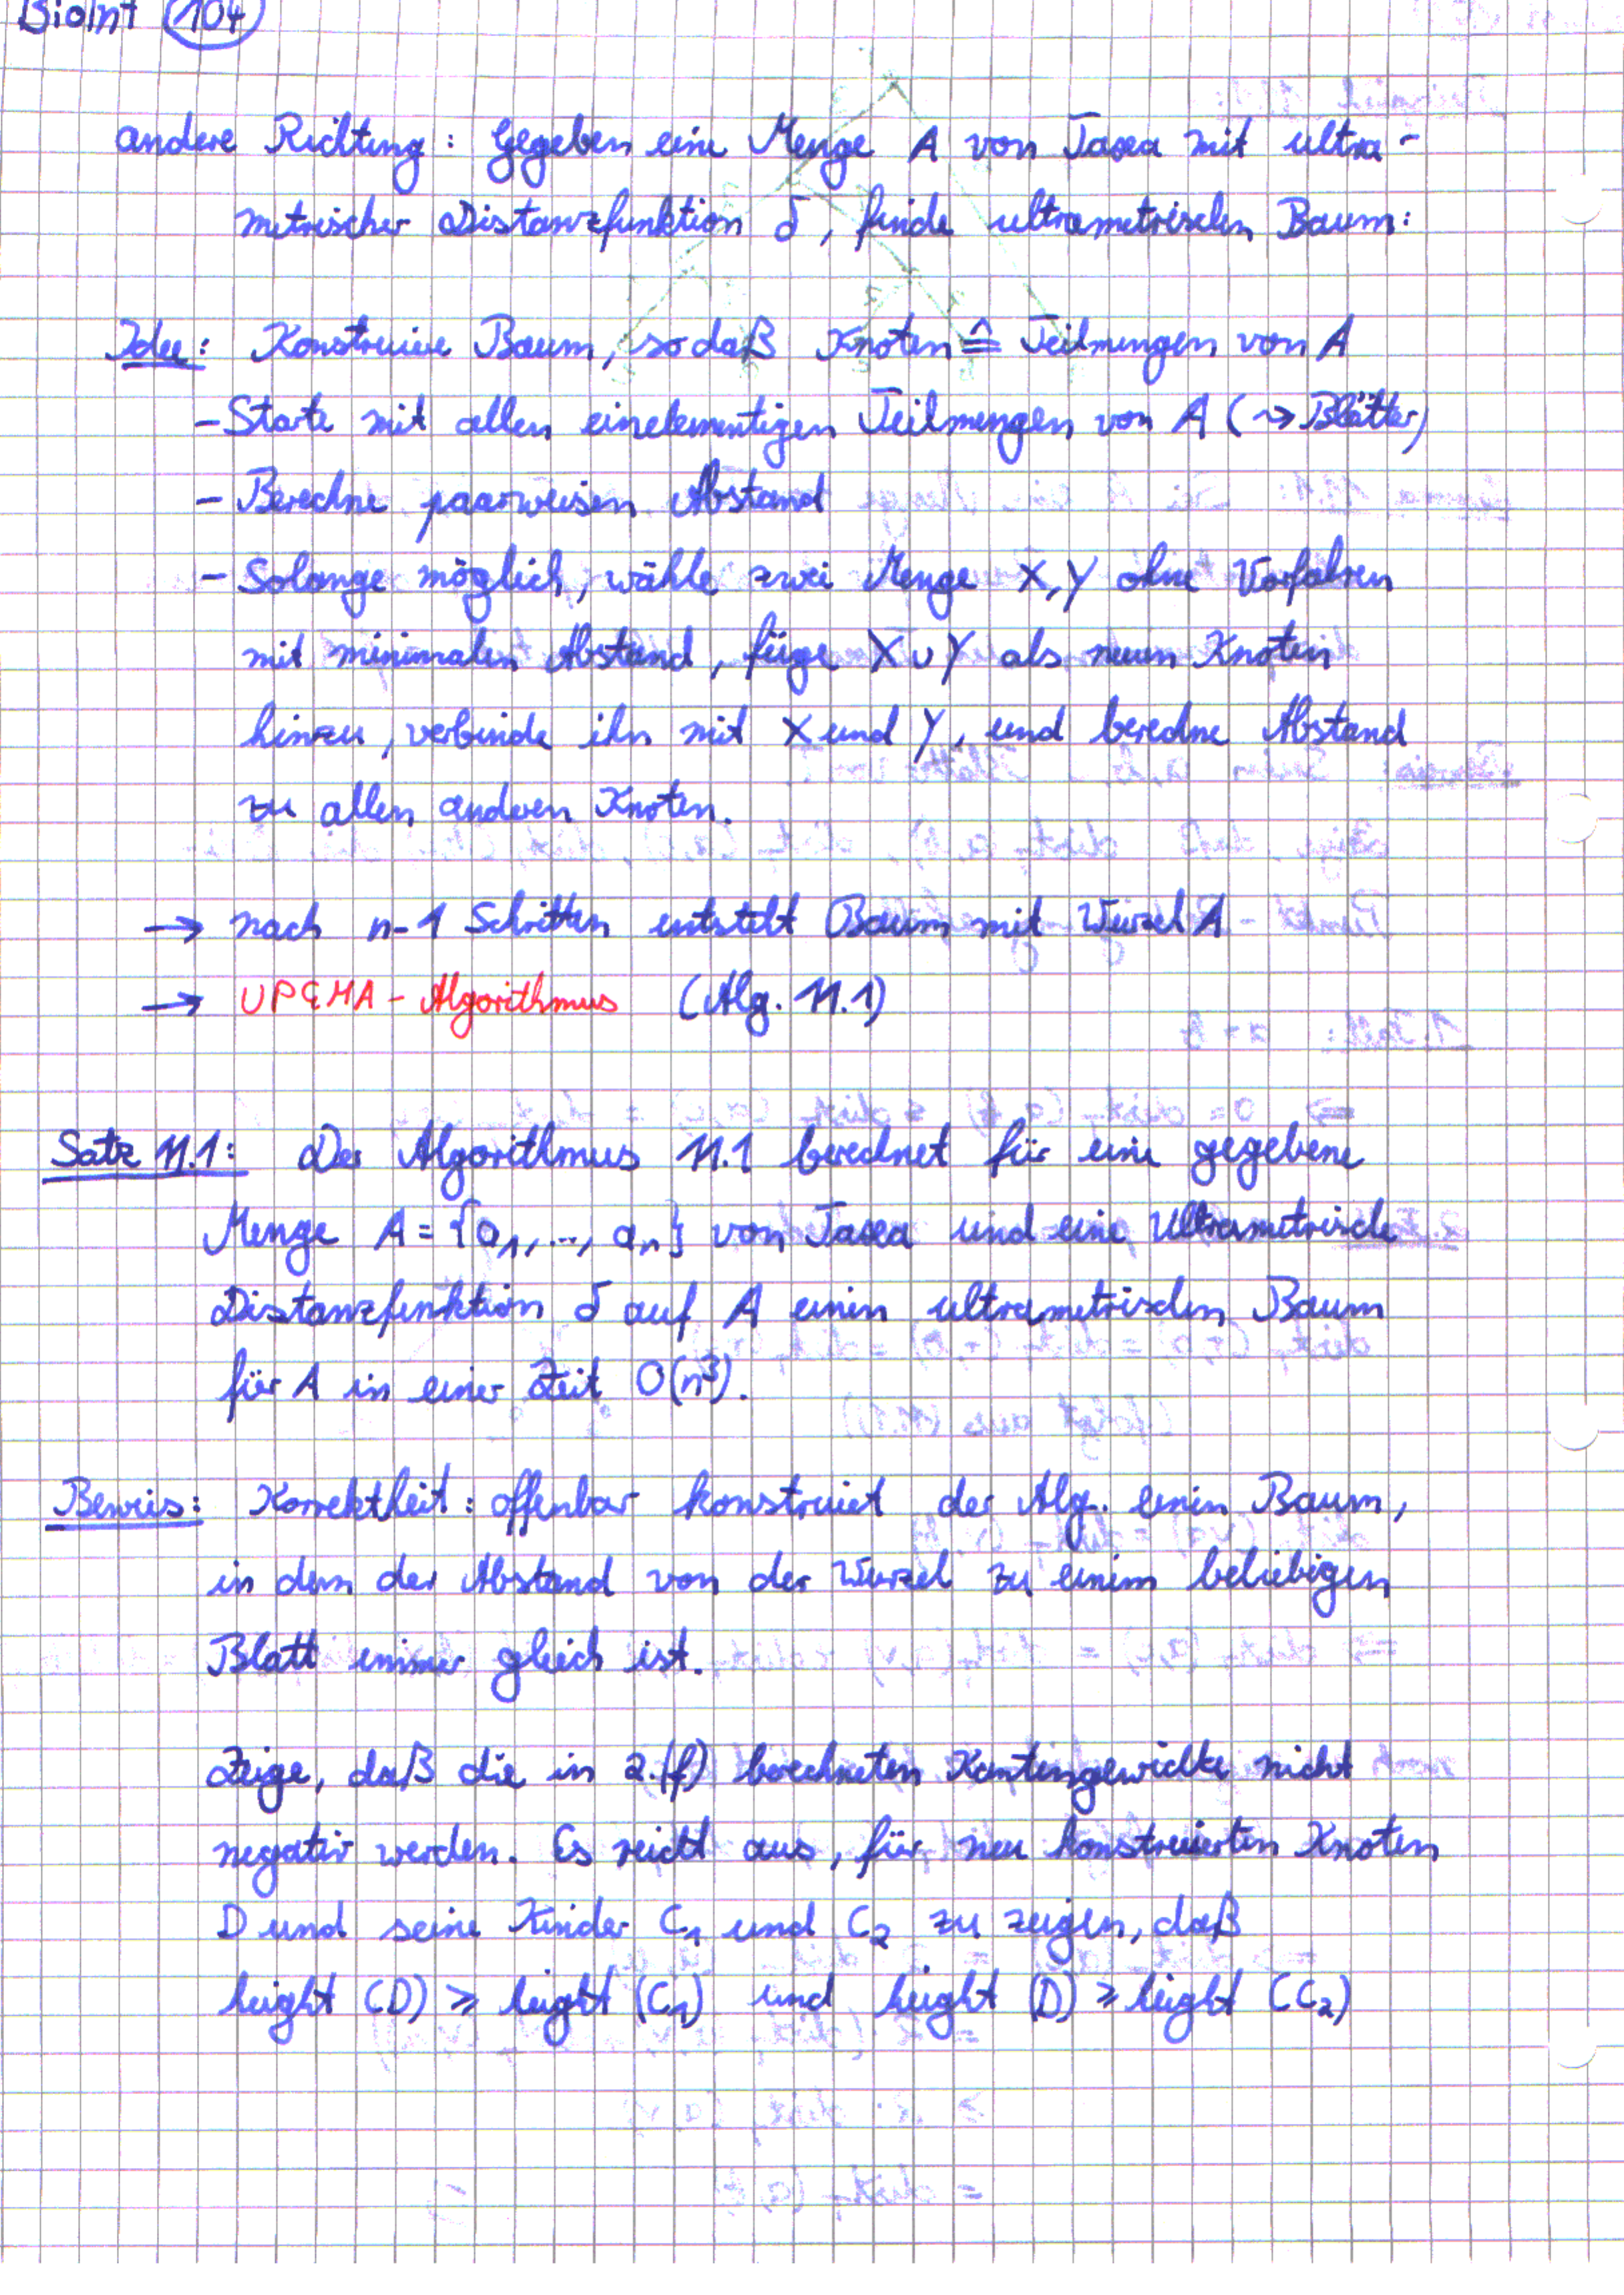 BioInf 104
andere Richtung: Gegeben eine Menge A von Taxa mit ultra-
metrischer Distanzfunktion δ, finde ultrametrischen Baum:
Idee: Konstruiere Baum, so daß Knoten ≙ Teilmengen von A
- Starte mit allen einelementigen Teilmengen von A (→ Blätter)
- Berechne paarweisen Abstand
- Solange möglich, wähle zwei Menge X, Y ohne Vorfahren
mit minimalen Abstand, füge X ∪ Y als neuen Knoten
hinzu, verbinde ihn mit X und Y, und berechne Abstand
zu allen anderen Knoten.
→ nach n-1 Schritten entsteht Baum mit Wurzel A
→ UPGMA-Algorithmus (Alg. 11.1)
Satz 11.1: Der Algorithmus 11.1 berechnet für eine gegebene
Menge A = {a₁, ..., aₙ} von Taxa und eine Ultrametrische
Distanzfunktion δ auf A einen ultrametrischen Baum
für A in einer Zeit O(n³).
Beweis: Korrektheit: offenbar konstruiert der Alg. einen Baum,
in dem der Abstand von der Wurzel zu einem beliebigen
Blatt immer gleich ist.
Zeige, daß die in 2.(f) berechneten Kantengewichte nicht
negativ werden. Es reicht aus, für neu konstruierten Knoten
D und seine Kinder C₁ und C₂ zu zeigen, daß
height (D) ≥ height (C₁) und height (D) ≥ height (C₂)